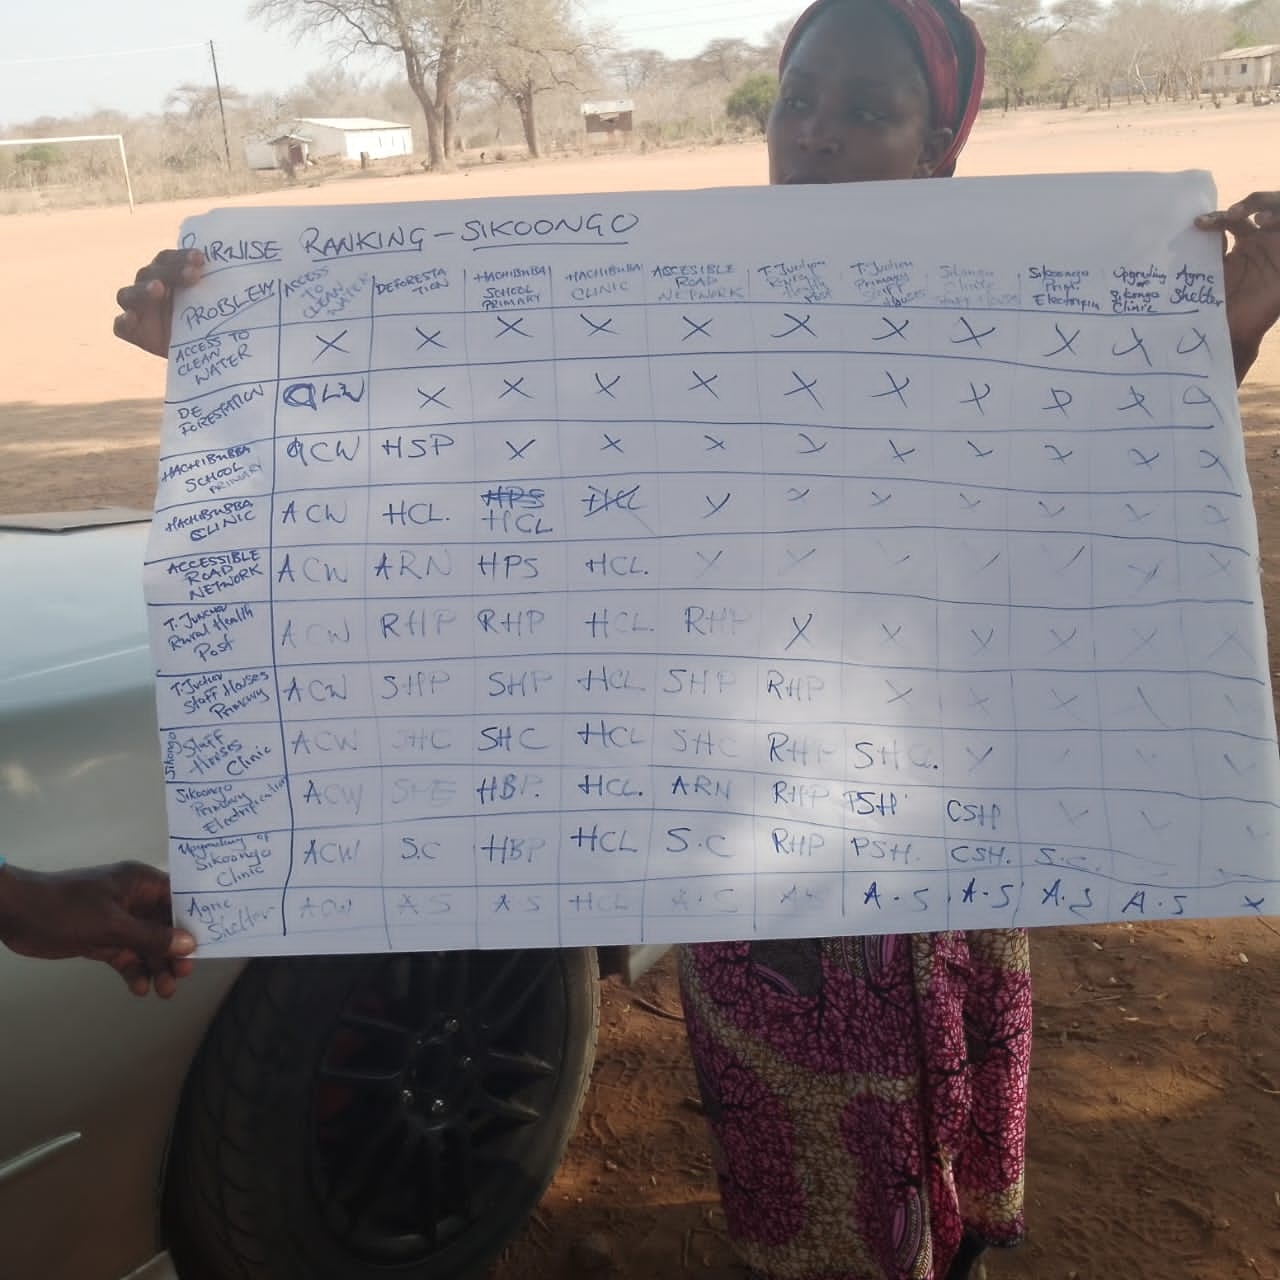 PAIRWISE RANKING - SIKOONGO
PROBLEM ACCESS TO CLEAN WATER DEFORESTATION HACHIBUBBA SCHOOL PRIMARY HACHIBUBBA CLINIC ACCESIBLE ROAD NETWORK T. Junction Rural Health Post T. Junction Primary Staff Houses Clinic Staff Houses Sikoongo Electrification Upgrading of Sikongo Clinic Agric Shelter
ACCESS TO CLEAN WATER X X X X X X X X X X X
DEFORESTATION CLW X X X X X X X X X
HACHIBUBBA SCHOOL PRIMARY ACW HSP X X X X X X X X X
HACHIBUBBA CLINIC ACW HCL. HPS HCL HCL X X X X X X X
ACCESSIBLE ROAD NETWORK ACW ARN HPS HCL. X X X X X X X
T. Junction Rural Health Post ACW RHP RHP HCL. RHP X X X X X X
T. Junction Staff Houses Primary ACW SHP SHP HCL SHP RHP X X X X X
Sikongo Staff Houses Clinic ACW SHC SHC HCL SHC RHP SHC. X
Sikoongo Primary Electrification ACW SHE HBP. HCL. ARN RHP PSH CSH
Upgrading of Sikoongo Clinic ACW S.C HBP HCL S.C RHP PSH. CSH. S.C.
Agric Shelter ACW A S A S HCL A.S A S A.S A.S A.S A.S X